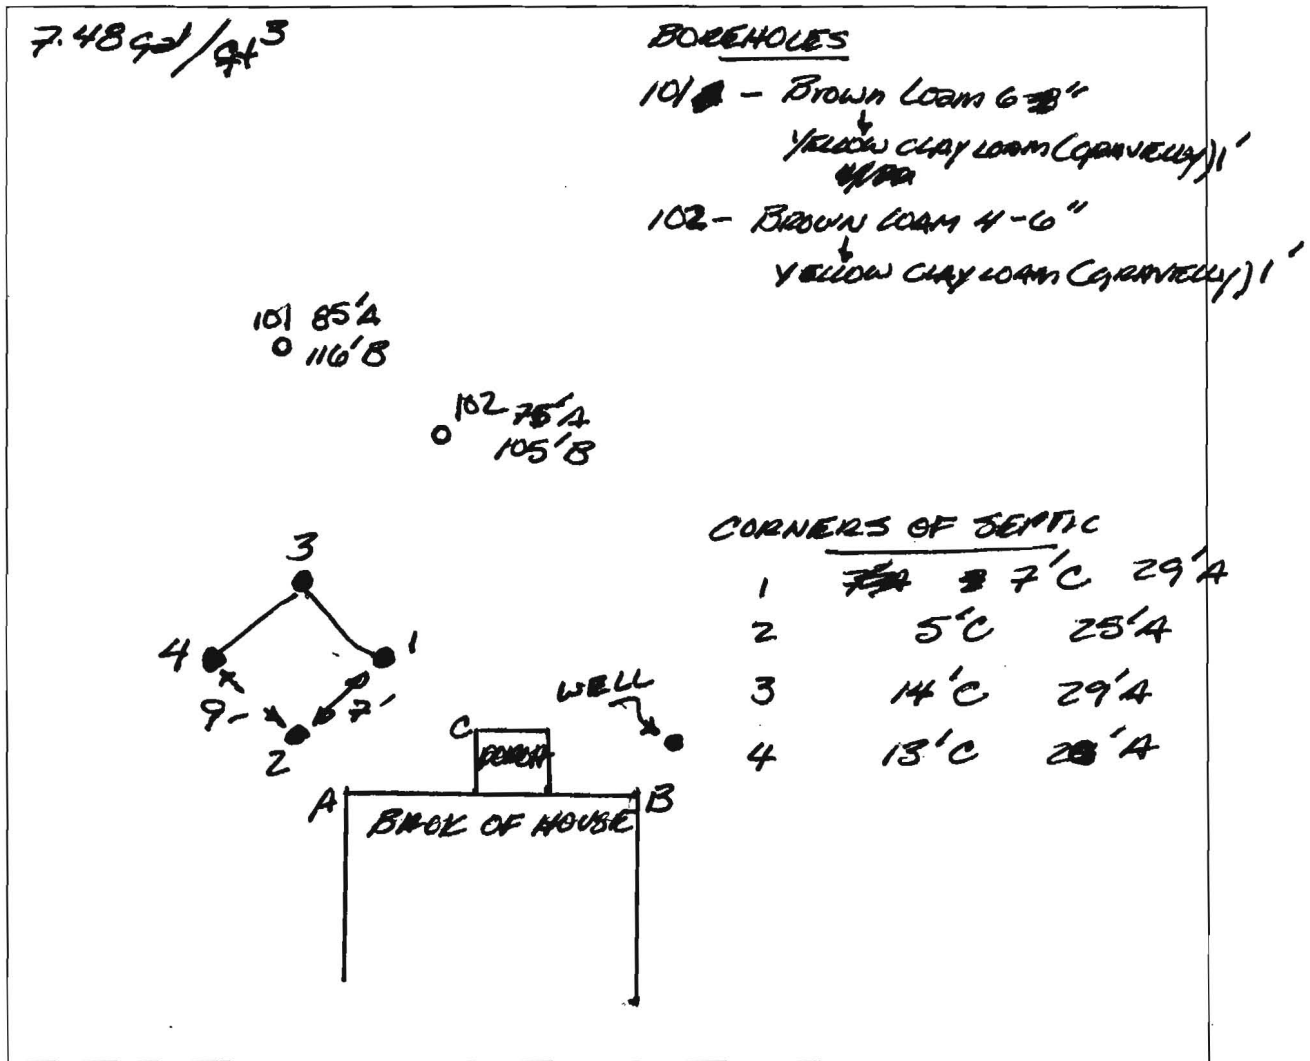 7.48 gal/ft³
BOREHOLES
101 - Brown Loam 6-8"
↓
YELLOW CLAY LOAM (GRAVELLY) 1'
102 - BROWN LOAM 4-6"
↓
YELLOW CLAY LOAM (GRAVELLY) 1'
101 85'A
116'B
102 75'A
105'B
CORNERS OF SEPTIC
1 7'C 29'A
2 5'C 25'A
3 14'C 29'A
4 13'C 'A
3
4
1
9'
7'
2
WELL
C
PORCH
A
B
BACK OF HOUSE